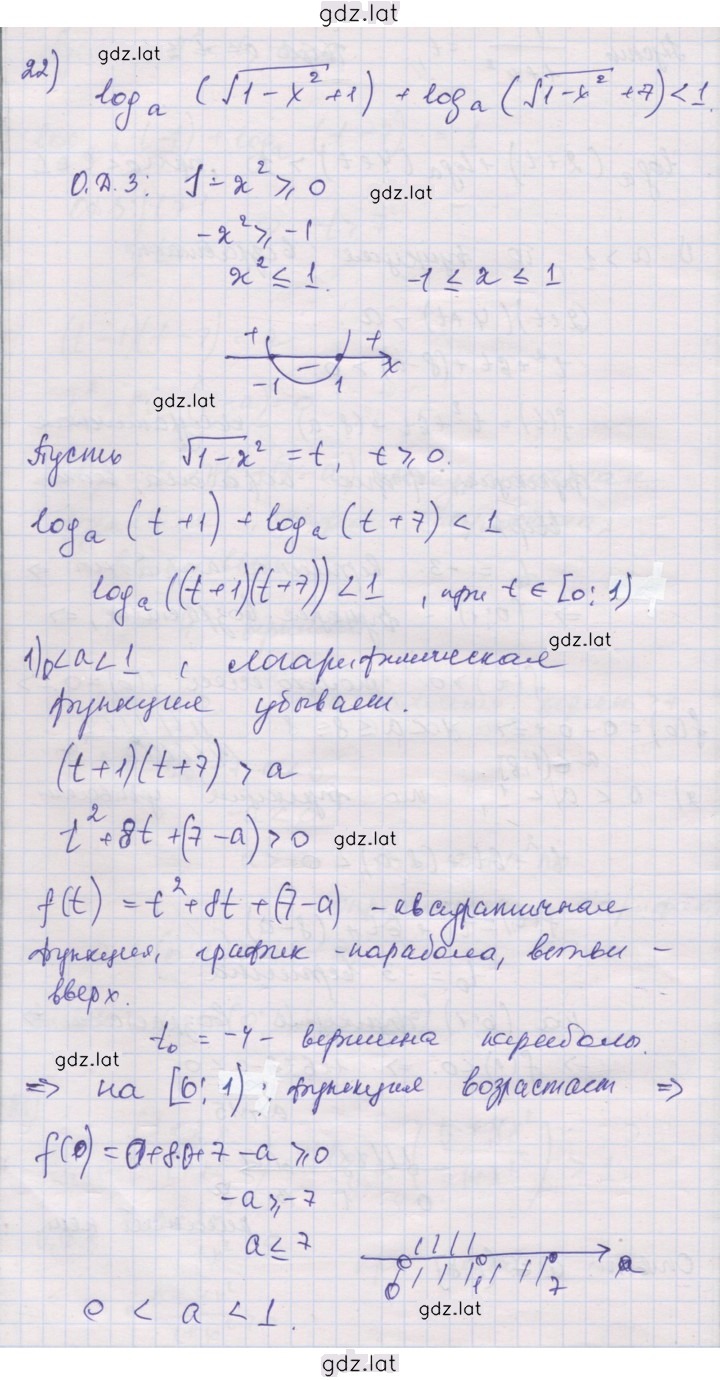 gdz.lat
22)
gdz.lat
log_a (√1-x²+1) + log_a (√1-x²+7) < 1
О.Д.З: 1-x² ≥ 0
gdz.lat
-x² ≥ -1
x² ≤ 1. -1 ≤ x ≤ 1
+ - + x
-1 1
gdz.lat
Пусть √1-x² = t, t ≥ 0.
log_a (t+1) + log_a (t+7) < 1
log_a ((t+1)(t+7)) < 1, при t ∈ [0; 1)
gdz.lat
1) 0<a<1, логарифмическая
функция убывает.
(t+1)(t+7) > a
t²+8t+(7-a)>0
gdz.lat
f(t) = t²+8t+(7-a) - квадратичная
функция, график - парабола, ветви -
вверх.
t₀ = -4 - вершина параболы.
gdz.lat
=> на [0; 1) : функция возрастает =>
f(0) = 0+8·0+7-a ≥ 0
-a ≥ -7
a ≤ 7
0 1 7 a
gdz.lat
0 < a < 1.
gdz.lat